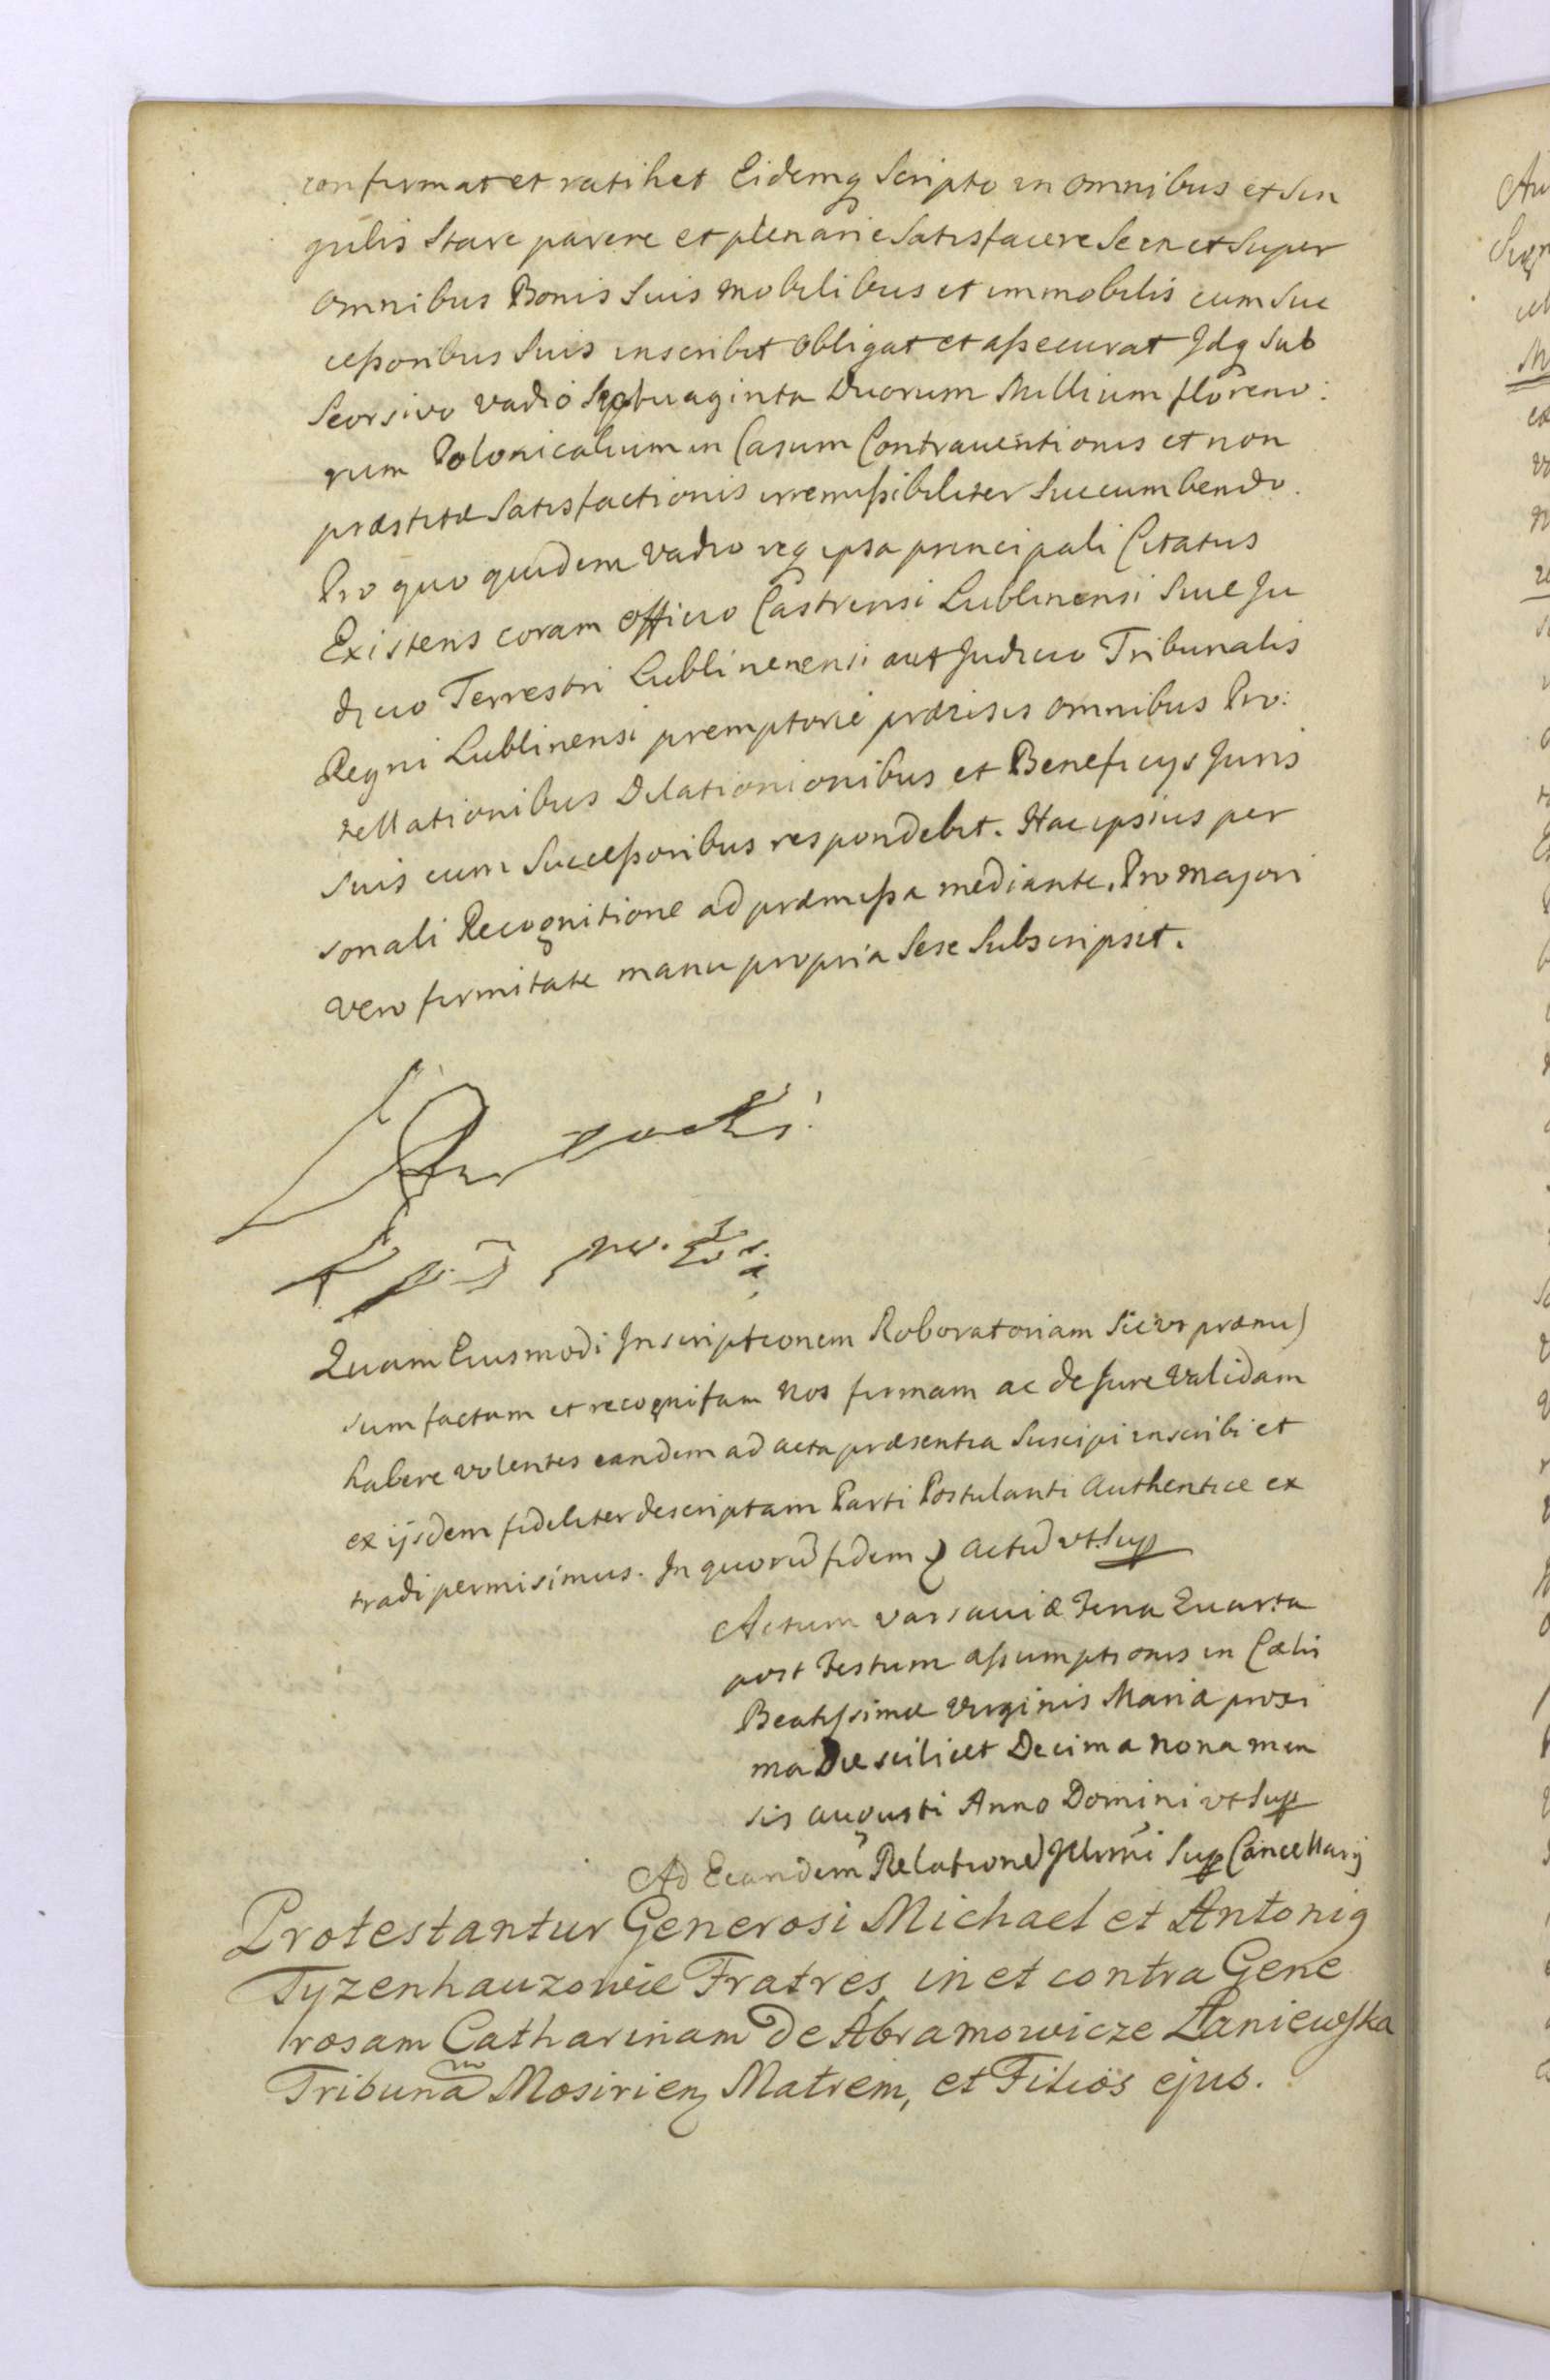 confirmat et ratihet Eidemq Scripto in omnibus et Sin
gulis Stare parere et plenarie Satisfacere Se in et Super
omnibus Bonis Suis mobilibus et immobilis cum Suc
cessoribus Suis inscribit obligat et assecurat Idq Sub
Seorsivo vadio Septuaginta Duorum Millium floreno:
rum Polonicalium in Casum Contraventionis et non
præstitæ Satisfactionis irremissibiliter Succumbendo.
Pro quo quidem vadio req ipsa principali Citatus
Existens coram officio Castrensi Lublinensi Sive Ju
dicio Terrestri Lublinenensi aut Judicio Tribunalis
Regni Lublinensi premptorie præcisis omnibus Pro:
tellationibus Dilationionibus et Beneficijs Juris
suis cum Successoribus respondebit. Hac ipsius per
sonali Recognitione ad præmissa mediante. Pro majori
vero firmitate manu propria Sese Subscripsit.
Quam Eiusmodi Inscriptionem Roboratoriam Sicut præmis
sum factam et recognitam Nos firmam ac de Jure validam
habere volentes eandem ad acta præsentia Suscipi inscribi et
ex ijsdem fideliter descriptam Parti Postulanti Authentice ex
tradi permisimus. In quorū fidem Actū ut Sup
Actum varsaviæ Feria Quarta
post Festum assumptionis in Cælis
Beatissimæ Virginis Mariæ proxi
ma Die scilicet Decima nona men
sis augusti Anno Domini ut Sup
Ad Eeandem Relationē Illmi Sup Cancellarij
Protestantur Generosi Michael et Antonig
Tyzenhauzowie Fratres, in et contra Gene
rosam Catharinam De Abramowicze Łaniewska
Tribunam Mosirien Matrem, et Filios ejus.